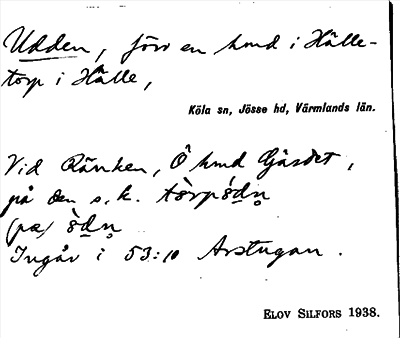 Udden, förr en hmd i Hälle-
torp i Hälle,
Köla sn, Jösse hd, Värmlands län.
Vid Ränken, Ö hmd Gärdet,
på den s. k. tòrpó̱dn̥
(pæ) ò̱dn̥
Ingår i 53:10 Arstugan.
ELOV SILFORS 1938.